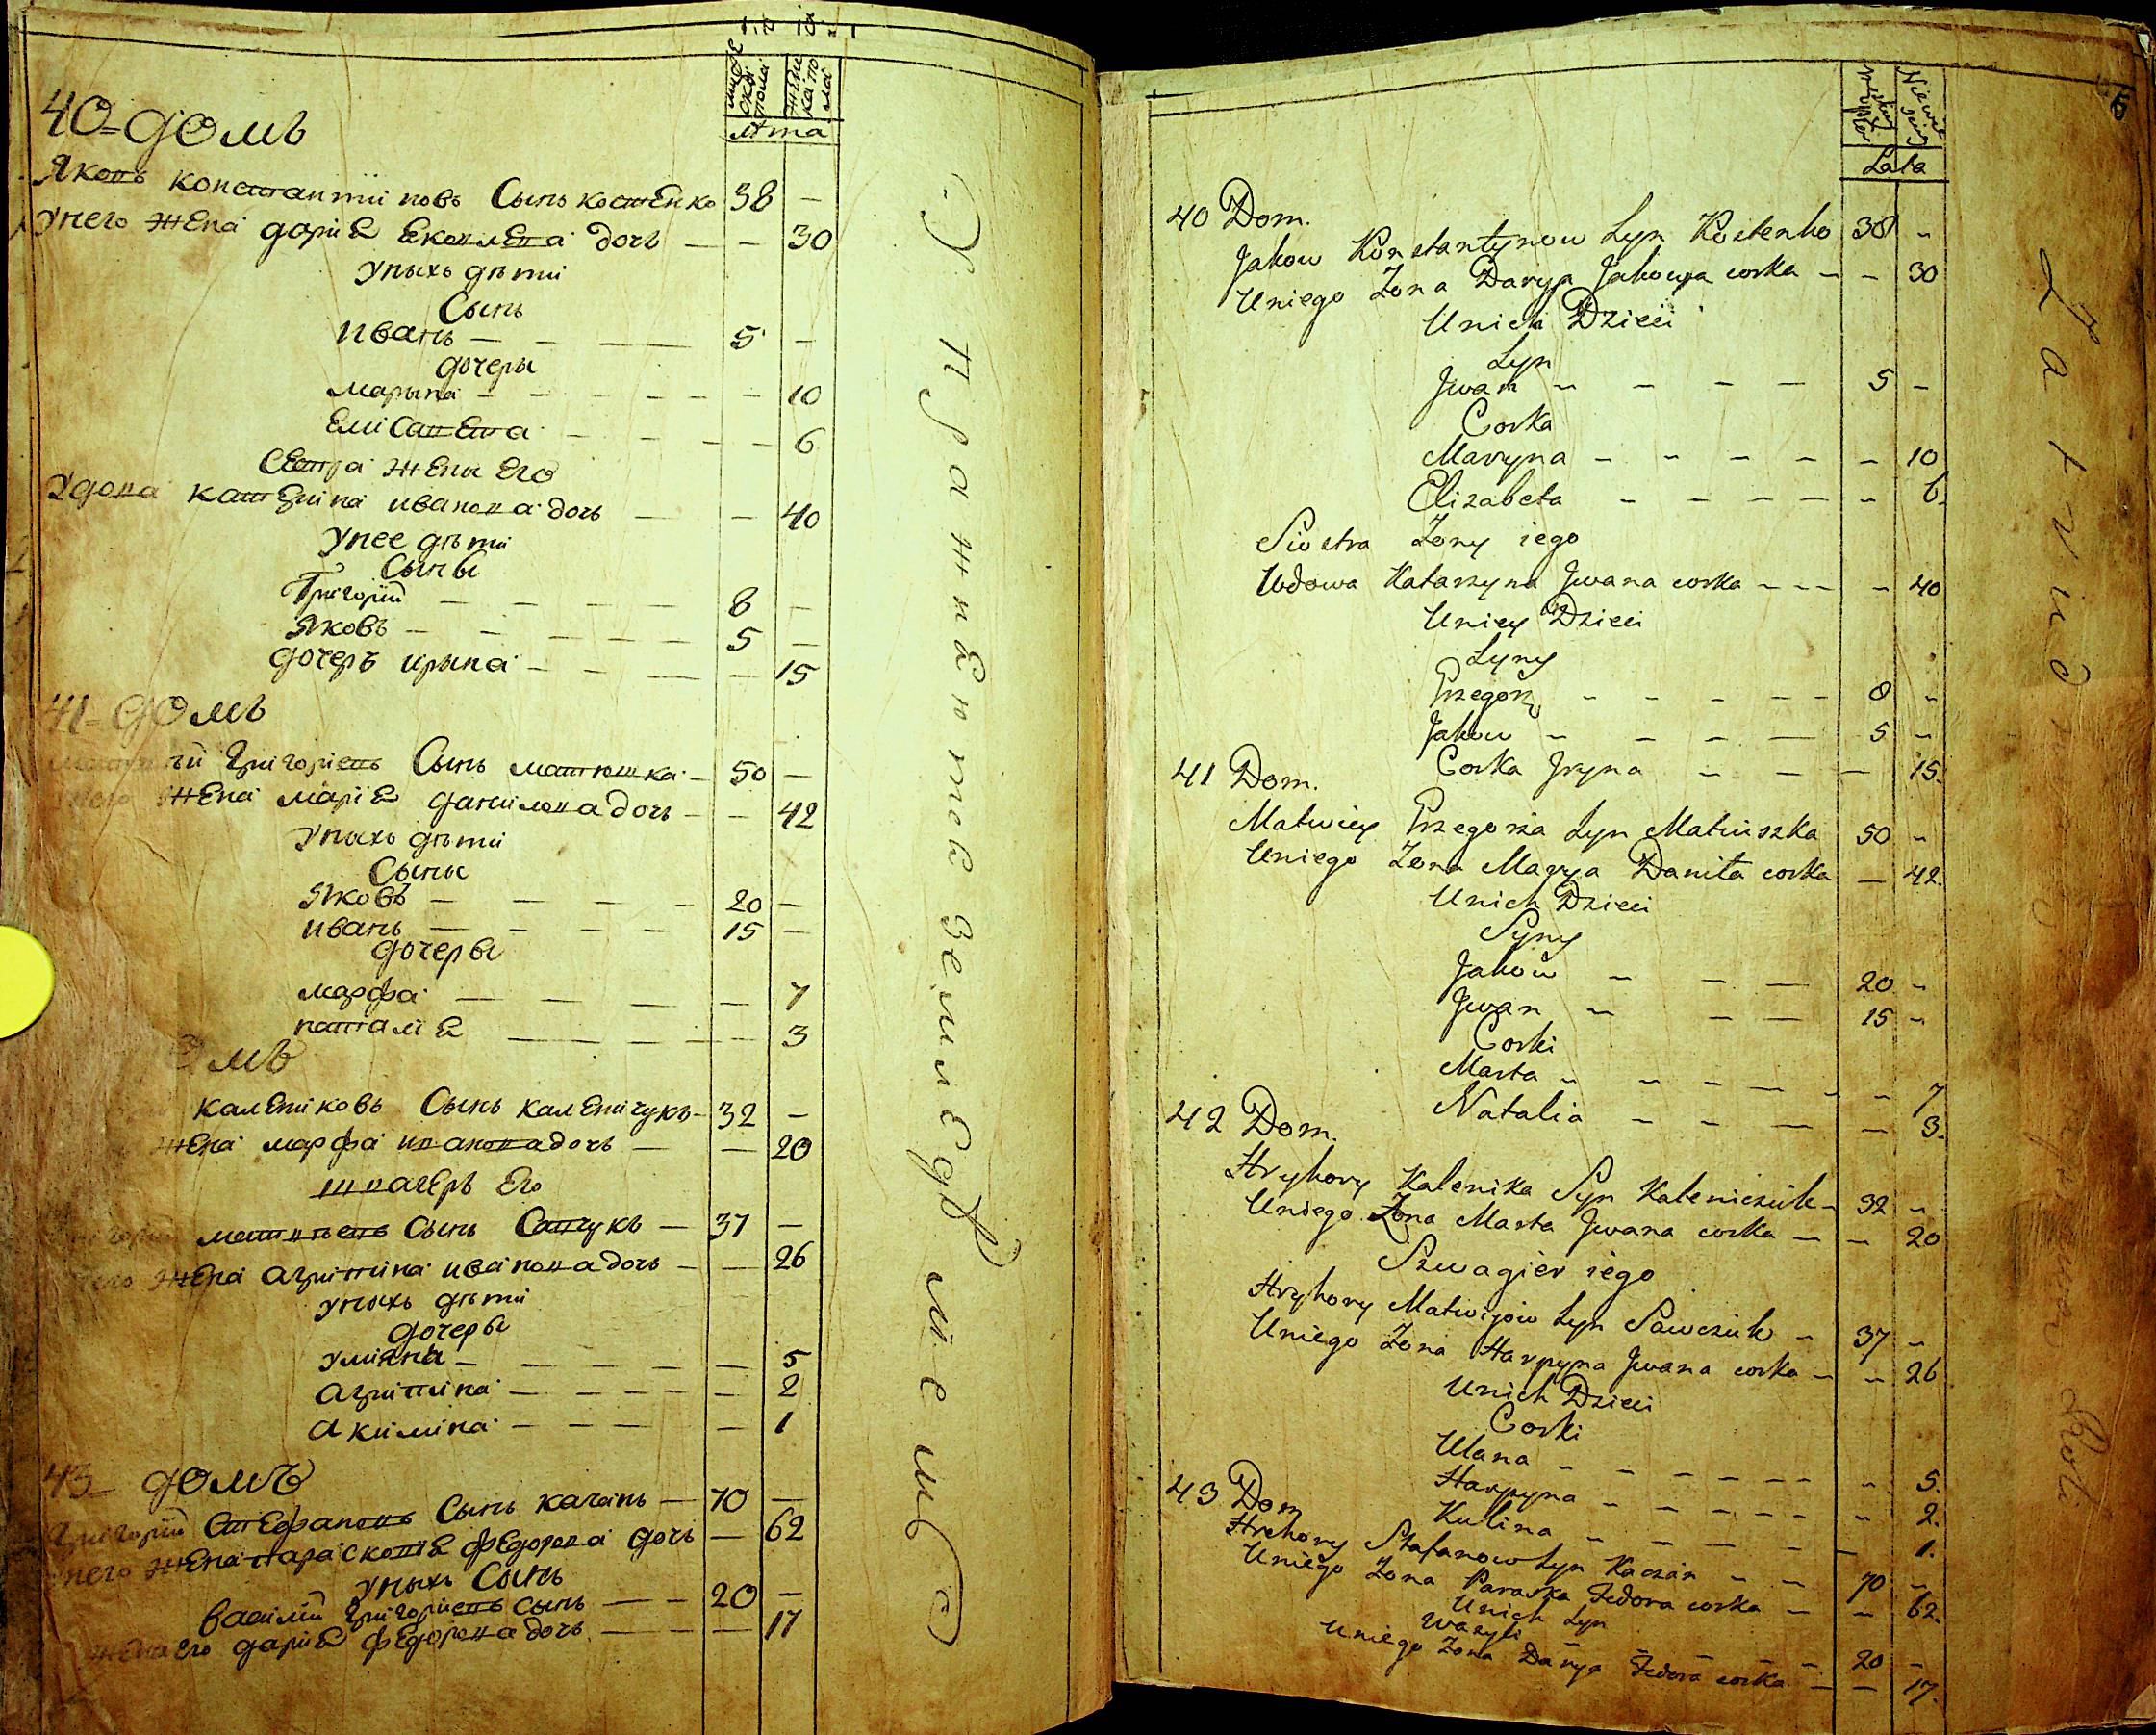 мужеска пола
женска пола
лѣта
40=домъ
Яковъ константиновъ Сынъ костенко 38 —
унего жена дарія яковлева дочь — — 30
унихъ дѣти
Сынъ
иванъ — — — 5 —
дочеры
марина — — — — — — 10
елисавета — — — — 6
сестра жены его
вдова катерина иванова дочь — — 40
унее дѣти
Сыны
Григорий — — — — 8 —
Яковъ — — — — — 5 —
дочеръ ирина — — — — 15
41=домъ
григориевъ Сынъ матюшка — 50 —
жена марія данилова дочь — — 42
унихъ дѣти
Сыны
Яковъ — — — — — 20 —
иванъ — — — — 15 —
дочеры
марфа — — — — 7
наталія — — — — — 3
омъ
калениковъ Сынъ каленичукъ — 32 —
жена марфа иванова дочь — — 20
швагеръ его
матвѣевъ сынъ Савчукъ — 37 —
жена агрипина иванова дочь — — 26
унихъ дѣти
дочеры
улияна — — — — — 5
агрипина — — — — — 2
акилина — — — — 1
43= домъ
Григорий Стефановъ Сынъ качанъ — 70 —
унего жена парасковія федорова дочь — 62
унихъ Сынъ
василий григориевъ сынъ — — 20 —
жена его дарія федорова дочь — — — 17
Lata
40 Dom.
Jakow Konstantynow Syn Kostenko 38 –
Uniego Zona Darya Jakowa corka – – 30
Unich Dzieci
Syn
Jwan – – – – 5 –
Corka
Maryna – – – – – – 10
Elizabeta – – – – – 6.
Siostra Zony iego
Wdowa Katarzyna Jwana corka – – – – 40
Uniey Dzieci
Syny
Grzegorz – – – – – 8 –
Jakow – – – – 5 –
Corka Jryna – – – 15.
41 Dom.
Matwiey Grzegorza Syn Matiuszka 50 –
Uniego Zona Marya Daniła corka – 42.
Unich Dzieci
Syny
Jakow – – – 20 –
Jwan – – – 15 –
Corki
Marta – – – – – – 7
Natalia – – – – 3.
42 Dom.
Hryhory Kalenika Syn Kaleniczuk – 32 –
Uniego Zona Marta Jwana corka – – 20
Szwagier iego
Hryhory Matwijow Syn Sawczuk – 37 –
Uniego Zona Harpyna Jwana corka – – 26
Unich Dzieci
Corki
Ulana – – – – – – – 5.
Harpyna – – – – – – 2.
Kulina – – – – – 1.
43 Dom
Hrehory Stefanow Syn Kaczan – – 70 –
Uniego Zona Paraska Fedora corka – – 62.
Unich Syn
Wasyli – – – – 20 –
Uniego Zona Darya Fedora corka – – 17.